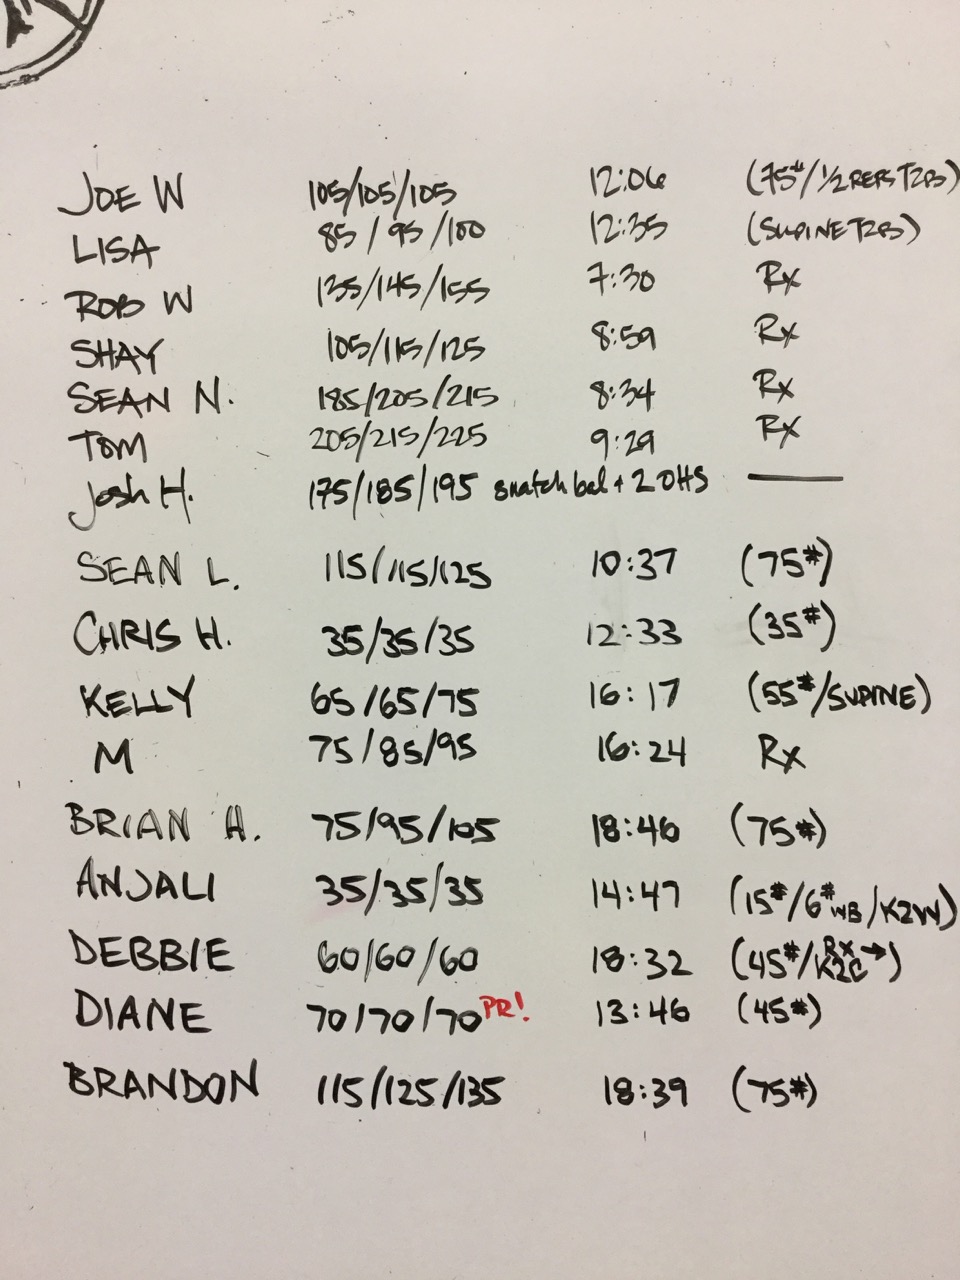 JOE W 105/105/105 12:06 (75#/1/2 REPS T2B)
LISA 85/95/100 12:35 (SUPINE T2B)
ROB W 135/145/155 7:30 Rx
SHAY 105/115/125 8:59 Rx
SEAN N. 185/205/215 8:34 Rx
TOM 205/215/225 9:29 Rx
Josh H. 175/185/195 snatch bal + 2 OHS —
SEAN L. 115/115/125 10:37 (75#)
CHRIS H. 35/35/35 12:33 (35#)
KELLY 65/65/75 16:17 (55#/SUPINE)
M 75/85/95 16:24 Rx
BRIAN H. 75/95/105 18:46 (75#)
ANJALI 35/35/35 14:47 (15#/6# WB/K2W)
DEBBIE 60/60/60 18:32 (45#/Rx K2C →)
DIANE 70/70/70 PR! 13:46 (45#)
BRANDON 115/125/135 18:39 (75#)